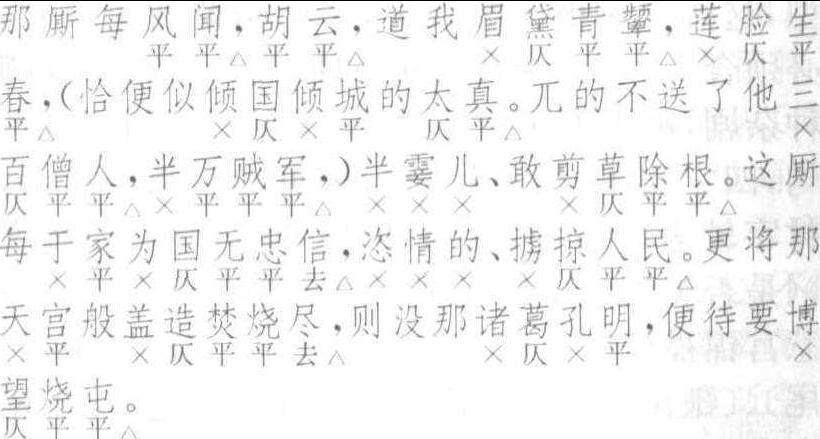 那厮每风闻，胡云，道我眉黛青颦，莲脸生
平平△平平△ ×仄平平△×仄平
春，（恰便似倾国倾城的太真。兀的不送了他三
平△ ×仄×平 仄平△ ×
百僧人，半万贼军，）半霎儿、敢剪草除根。这厮
仄平平△×平平平△ ××× ×仄平平△
每于家为国无忠信，恣情的、掳掠人民。更将那
×平×仄平平去△××× ×仄平平△
天宫般盖造焚烧尽，则没那诸葛孔明，便待要博
×平 ×仄平平去△ ×仄×平 ×
望烧屯。
仄平平△